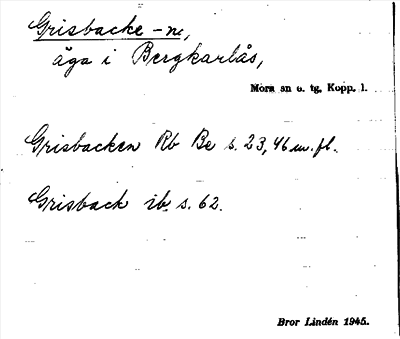 Grisbacke -n,
äga i Bergkarlås,
Mora sn o. tg, Kopp. l.
Grisbacken Rb Be s. 23, 46 m. fl.
Grisback ib s. 62.
Bror Lindén 1945.